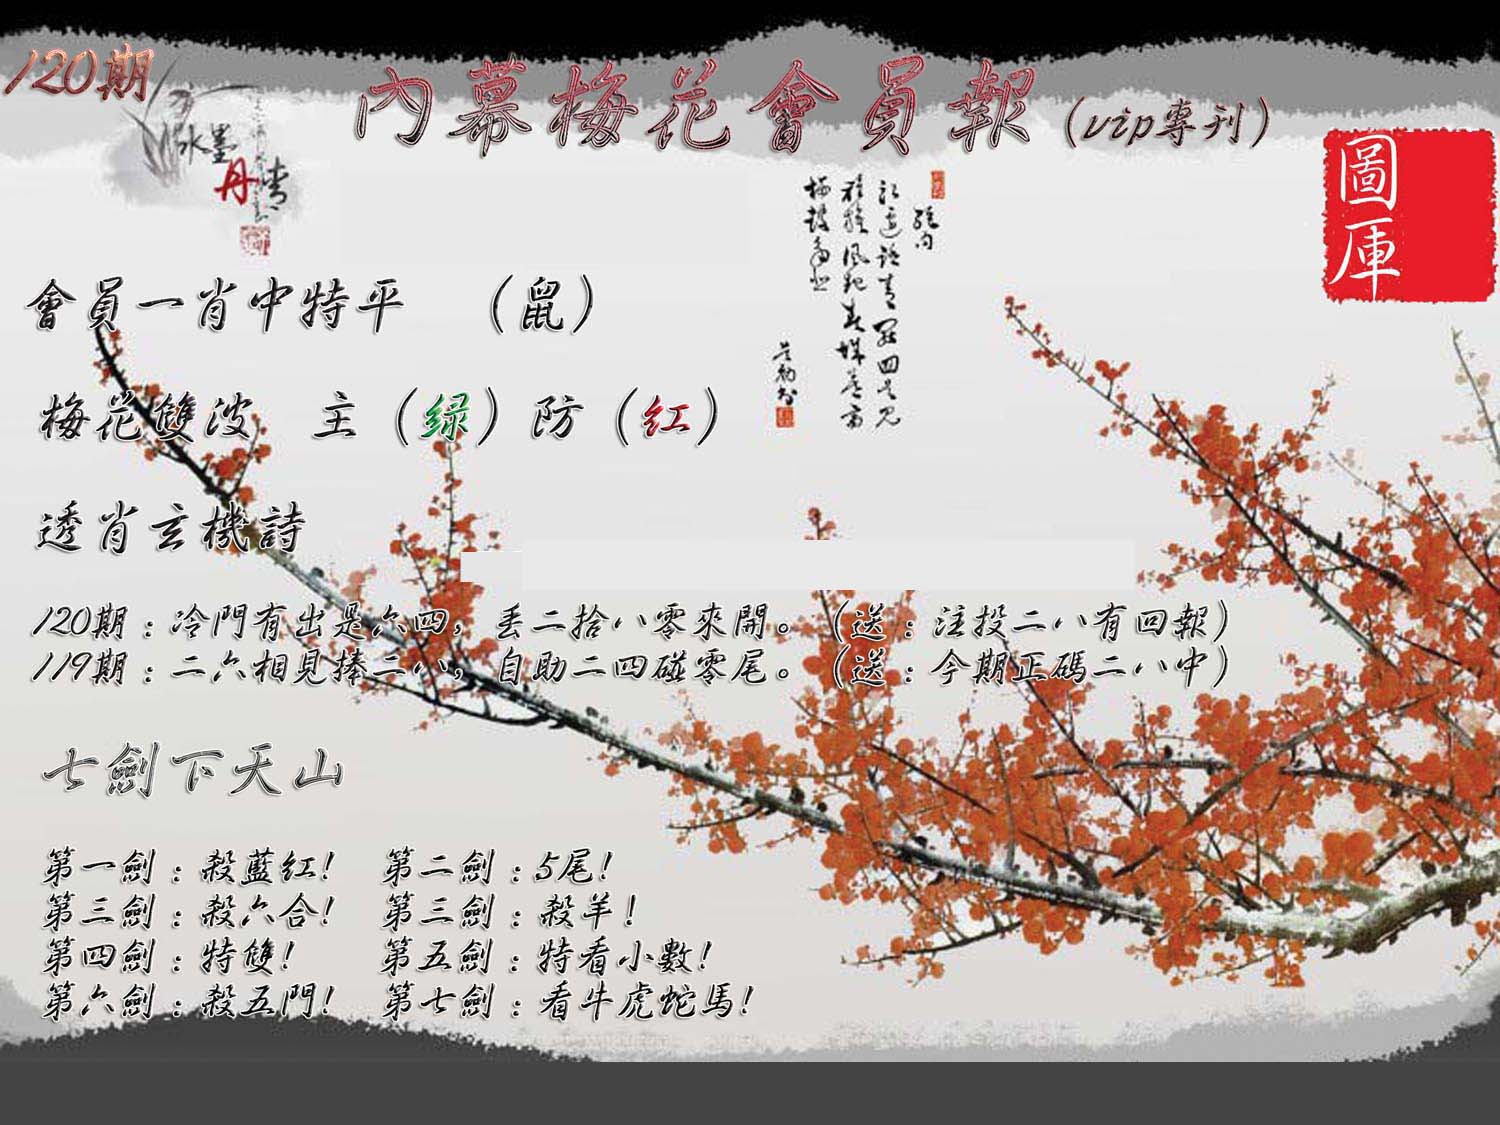 120期
內幕梅花會員報（vip專刊）
水墨
丹青
圖庫
會員一肖中特平　（鼠）
梅花雙波　主（绿）防（红）
透肖玄機詩
120期：冷門有出是六四，丟二拾八零來開。（送：注投二八有回報）
119期：二六相見捧二八，自助二四碰零尾。（送：今期正碼二八中）
七劍下天山
第一劍：殺藍紅！　第二劍：5尾！
第三劍：殺六合！　第三劍：殺羊！
第四劍：特雙！　第五劍：特看小數！
第六劍：殺五門！　第七劍：看牛虎蛇馬！